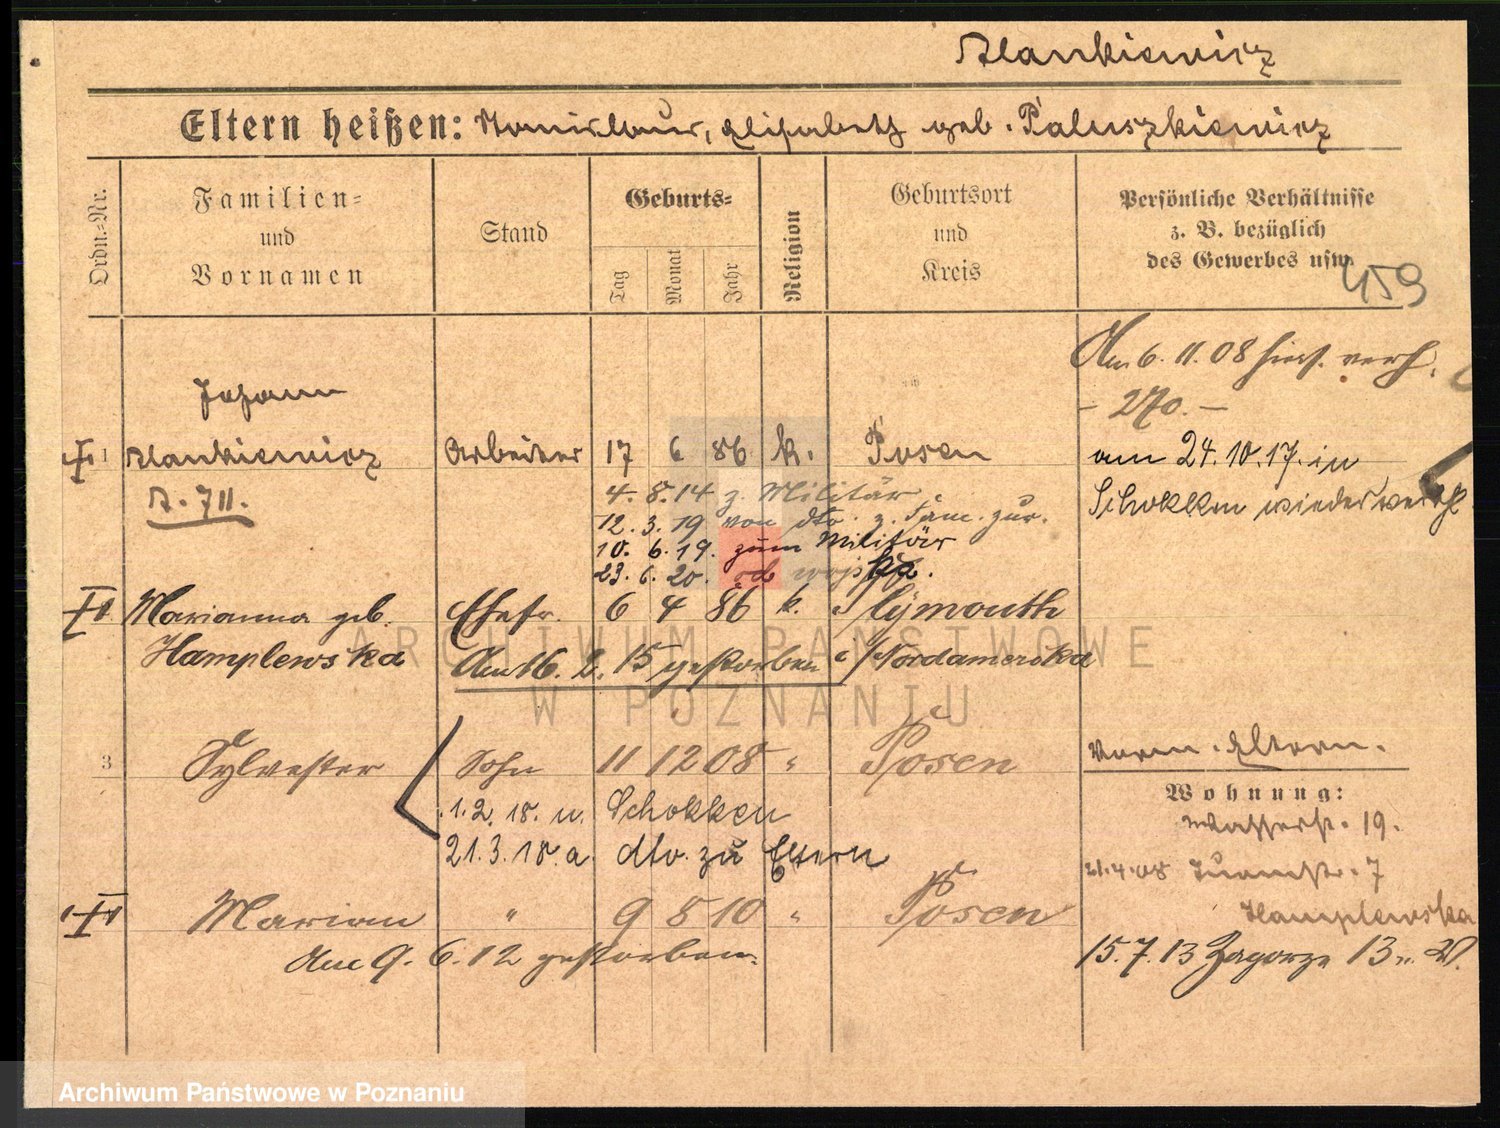 Stankiewicz
Eltern heißen: Stanislaus, Elisabeth geb. Paluszkiewicz
Ordn.-Nr.
Familien-
und
Vornamen
Stand
Geburts-
Tag
Monat
Jahr
Religion
Geburtsort
und
Kreis
Persönliche Verhältnisse
z. B. bezüglich
des Gewerbes usw.
459
Am 6. 11. 08 hies. verh.
- 270. -
Johann
1 Stankiewicz Arbeiter 17 6 86 k. Posen
am 24. 10. 17. in
Schokken wieder verh.
A. 711.
4. 8. 14 z. Militär
12. 3. 19 von dto. z. Fam. zur.
10. 6. 19. zum Militär
23. 6. 20. od wojska.
Marianna geb. Ehefr. 6 4 86 k. Plymouth
Hamplewska Am 16. 2. 15 gestorben Nordamerika
3 Sylvester Sohn 11 12 08 " Posen
1. 2. 18. n. Schokken
21. 3. 18. a. dto. zu Eltern
Marian " 9 8 10 " Posen
Am 9. 6. 12 gestorben.
Vorm. Eltern.
Wohnung:
Wasserstr. 19.
21.4.08 Turmstr. 7
Hamplewska
15. 7. 13 Zagorze 13
ARCHIWUM PAŃSTWOWE
W POZNANIU
Archiwum Państwowe w Poznaniu